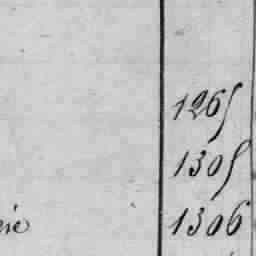 1265
1305
1306